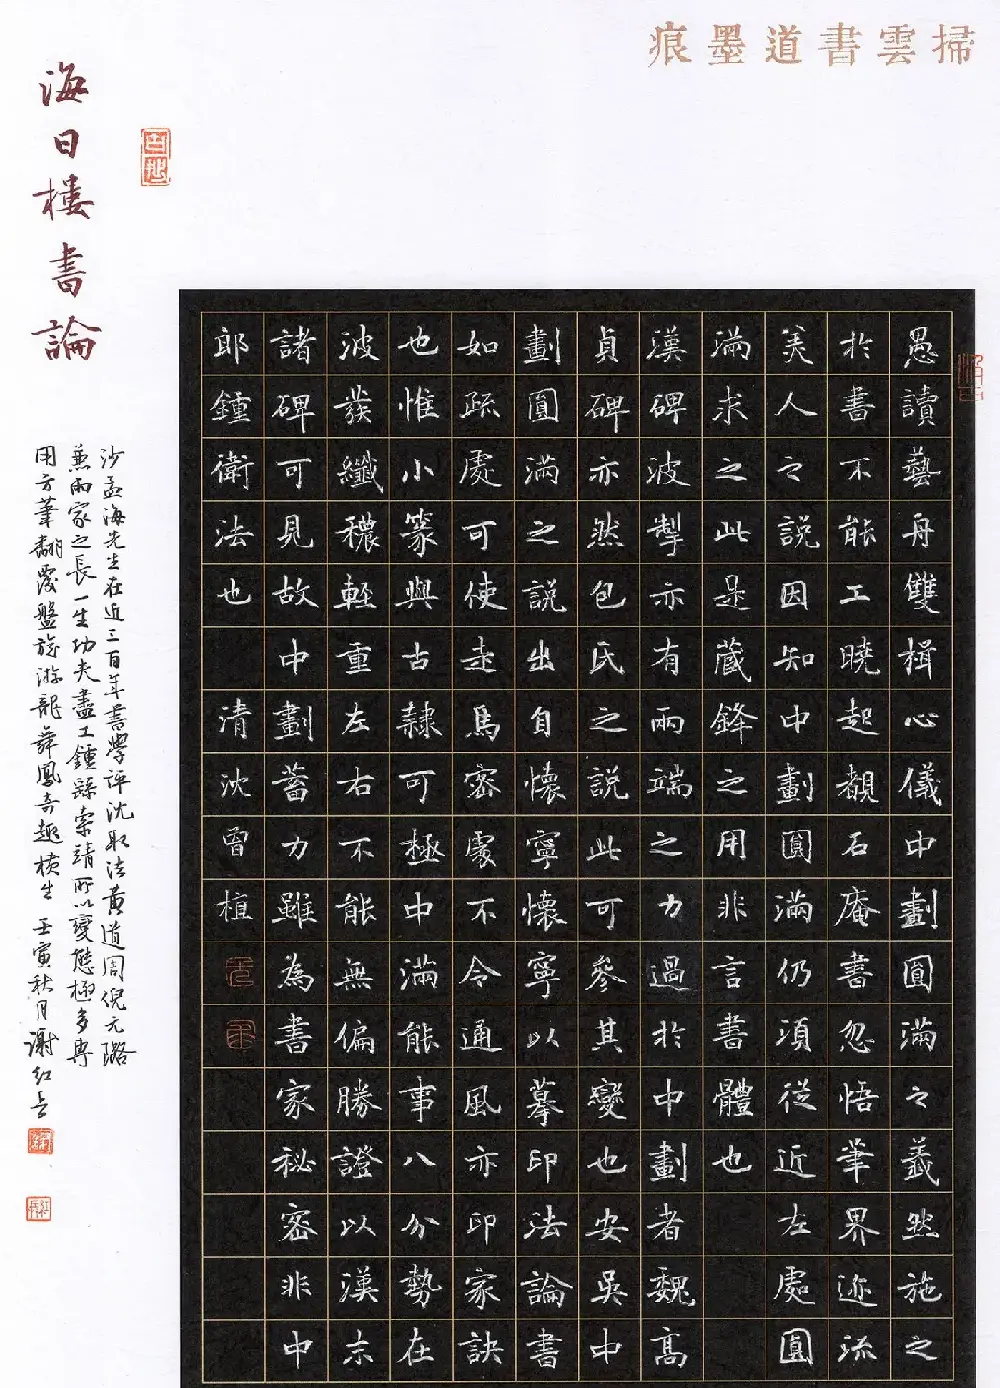 掃雲書道墨痕
愚讀藝舟雙楫心儀中劃圓滿之義然施之
於書不能工曉起覩石庵書忽悟筆界迹流
美人之說因知中劃圓滿仍須從近左處圓
滿求之此是藏鋒之用非言書體也
漢碑波掣亦有兩端之力過於中劃者魏高
貞碑亦然包氏之說此可參其變也安吳中
劃圓滿之說出自懷寧懷寧以摹印法論書
如疏處可使走馬密處不令通風亦印家訣
也惟小篆與古隸可極中滿能事八分勢在
波發纖穠輕重左右不能無偏勝證以漢末
諸碑可見故中劃蓄力雖為書家秘密非中
郎鍾衛法也 清沈曾植
海日樓書論
沙孟海先生在近三百年書學評沈取法黃道周倪元璐
兼兩家之長一生功夫盡工鍾繇索靖所以變態極多專
用方筆翻覆盤旋游龍舞鳳奇趣橫生 壬寅秋月謝紅兵